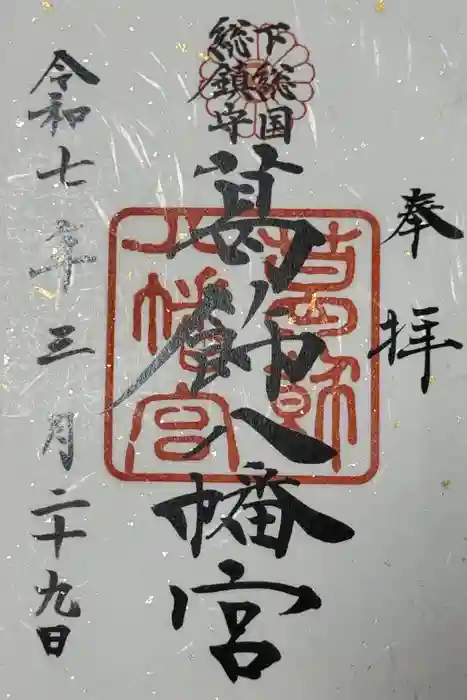 奉拝
下総国
総鎮守
葛飾八幡宮
葛飾
八幡宮
令和七年三月二十九日